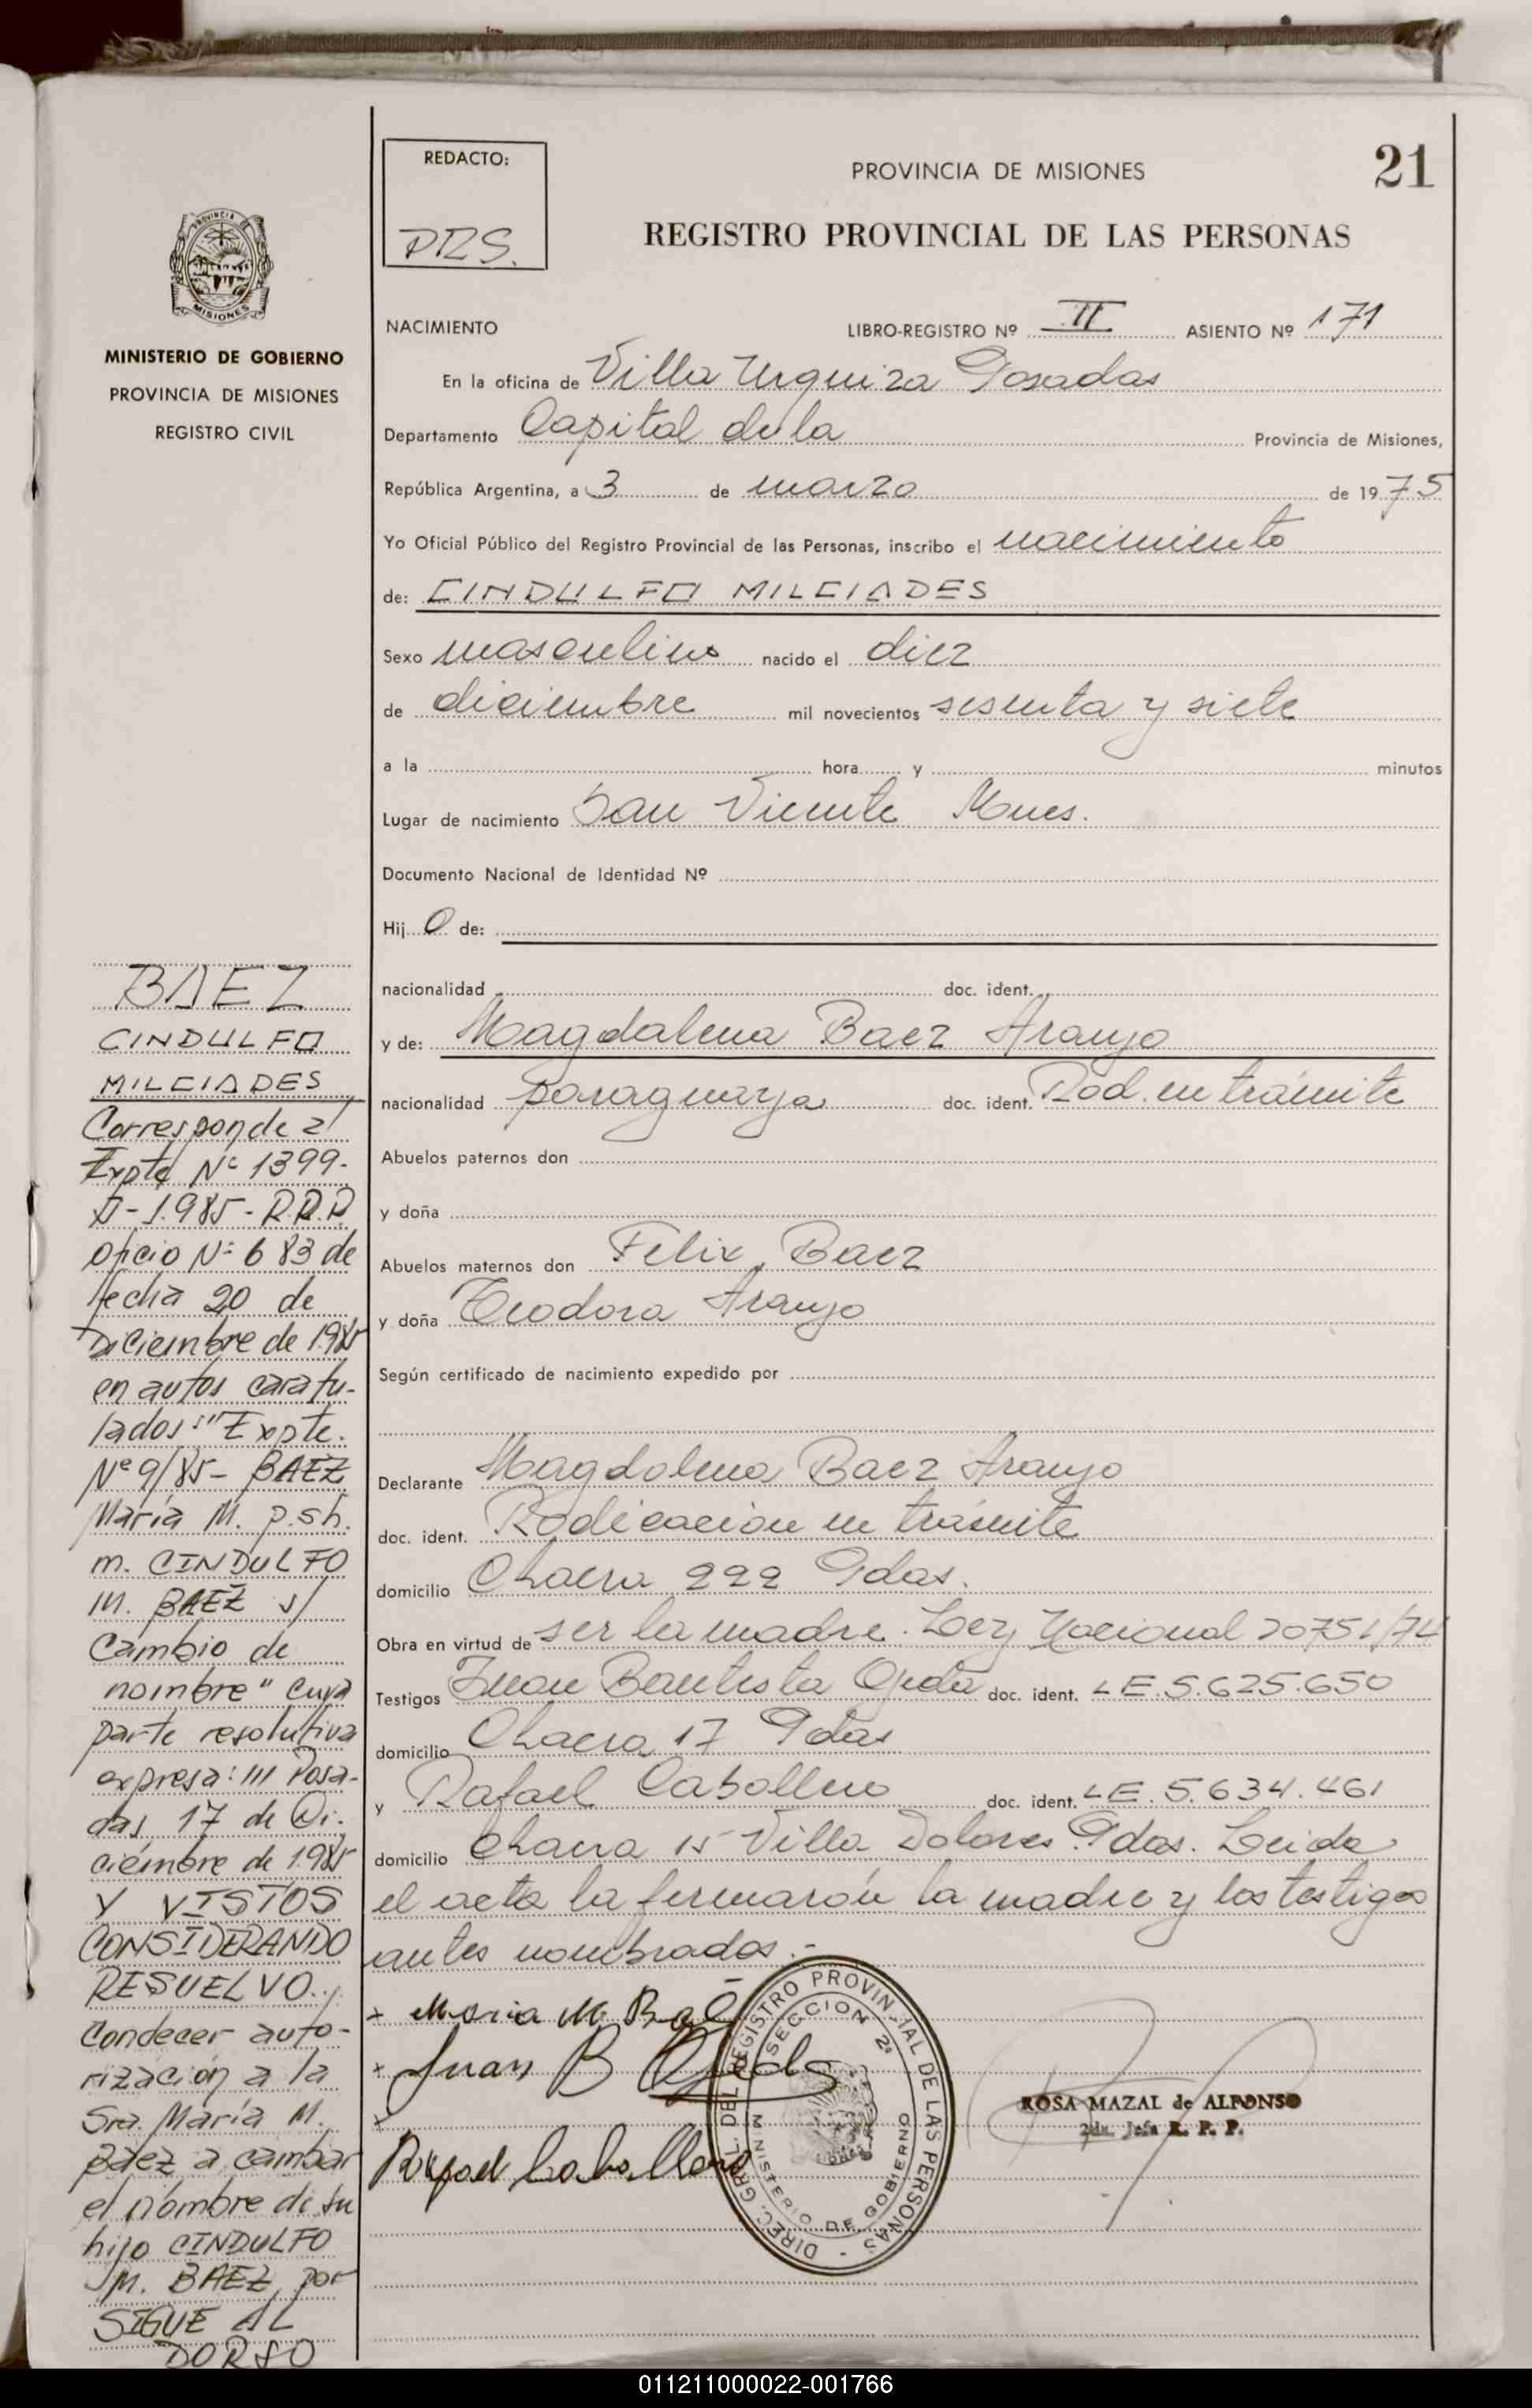 REDACTO:
PRS.
PROVINCIA DE MISIONES
21
REGISTRO PROVINCIAL DE LAS PERSONAS
PROVINCIA
MISIONES
MINISTERIO DE GOBIERNO
PROVINCIA DE MISIONES
REGISTRO CIVIL
NACIMIENTO
LIBRO-REGISTRO Nº II ASIENTO Nº 171
En la oficina de Villa Urquiza Posadas
Departamento Capital de la Provincia de Misiones,
República Argentina, a 3 de marzo de 1975
Yo Oficial Público del Registro Provincial de las Personas, inscribo el nacimiento
de: CINDULFO MILCIADES
Sexo masculino nacido el diez
de diciembre mil novecientos sesenta y siete
a la hora y minutos
Lugar de nacimiento San Vicente Mnes.
Documento Nacional de Identidad Nº
Hijo de:
nacionalidad doc. ident.
y de: Magdalena Baez Araujo
nacionalidad paraguaya doc. ident. Rad. en trámite
Abuelos paternos don
y doña
Abuelos maternos don Felix Baez
y doña Teodora Araujo
Según certificado de nacimiento expedido por
Declarante Magdalena Baez Araujo
doc. ident. Radicacion en trámite
domicilio Chacra 222 Pdas.
Obra en virtud de ser la madre. Ley Nacional 20751/74
Testigos Juan Bautista Ojeda doc. ident. LE.5.625.650
domicilio Chacra 17 Pdas
y Rafael Caballero doc. ident. LE.5.634.461
domicilio Chacra 15 Villa Dolores Pdas. Leida
el acta la firmarón la madre y los testigos
antes nombrados.-
x Maria M. Baez
x Juan B Ojeda
x
Rafael Caballero
DIREC. GRAL. DEL REGISTRO PROVINCIAL DE LAS PERSONAS -
SECCION 2ª
MINISTERIO DE GOBIERNO
ROSA MAZAL de ALFONSO
2da. Jefa R. P. P.
BAEZ
CINDULFO
MILCIADES
Corresponde al
Expte Nº 1399-
1.985 - R.P.P.
Oficio Nº 683 de
fecha 20 de
Diciembre de 1985
en autos caratu-
lados: "Expte.
Nº 9/85 - BAEZ
María M. p.sh.
m. CINDULFO
M. BAEZ s/
Cambio de
nombre" cuya
parte resolutiva
expresa: /// Posa-
das, 17 de Di-
ciembre de 1985
Y VISTOS
CONSIDERANDO
RESUELVO..
Condecer auto-
rización a la
Sra. María M.
Báez a cambar
el nombre de su
hijo CINDULFO
M. BAEZ, por
SIGUE AL
DORSO
011211000022-001766